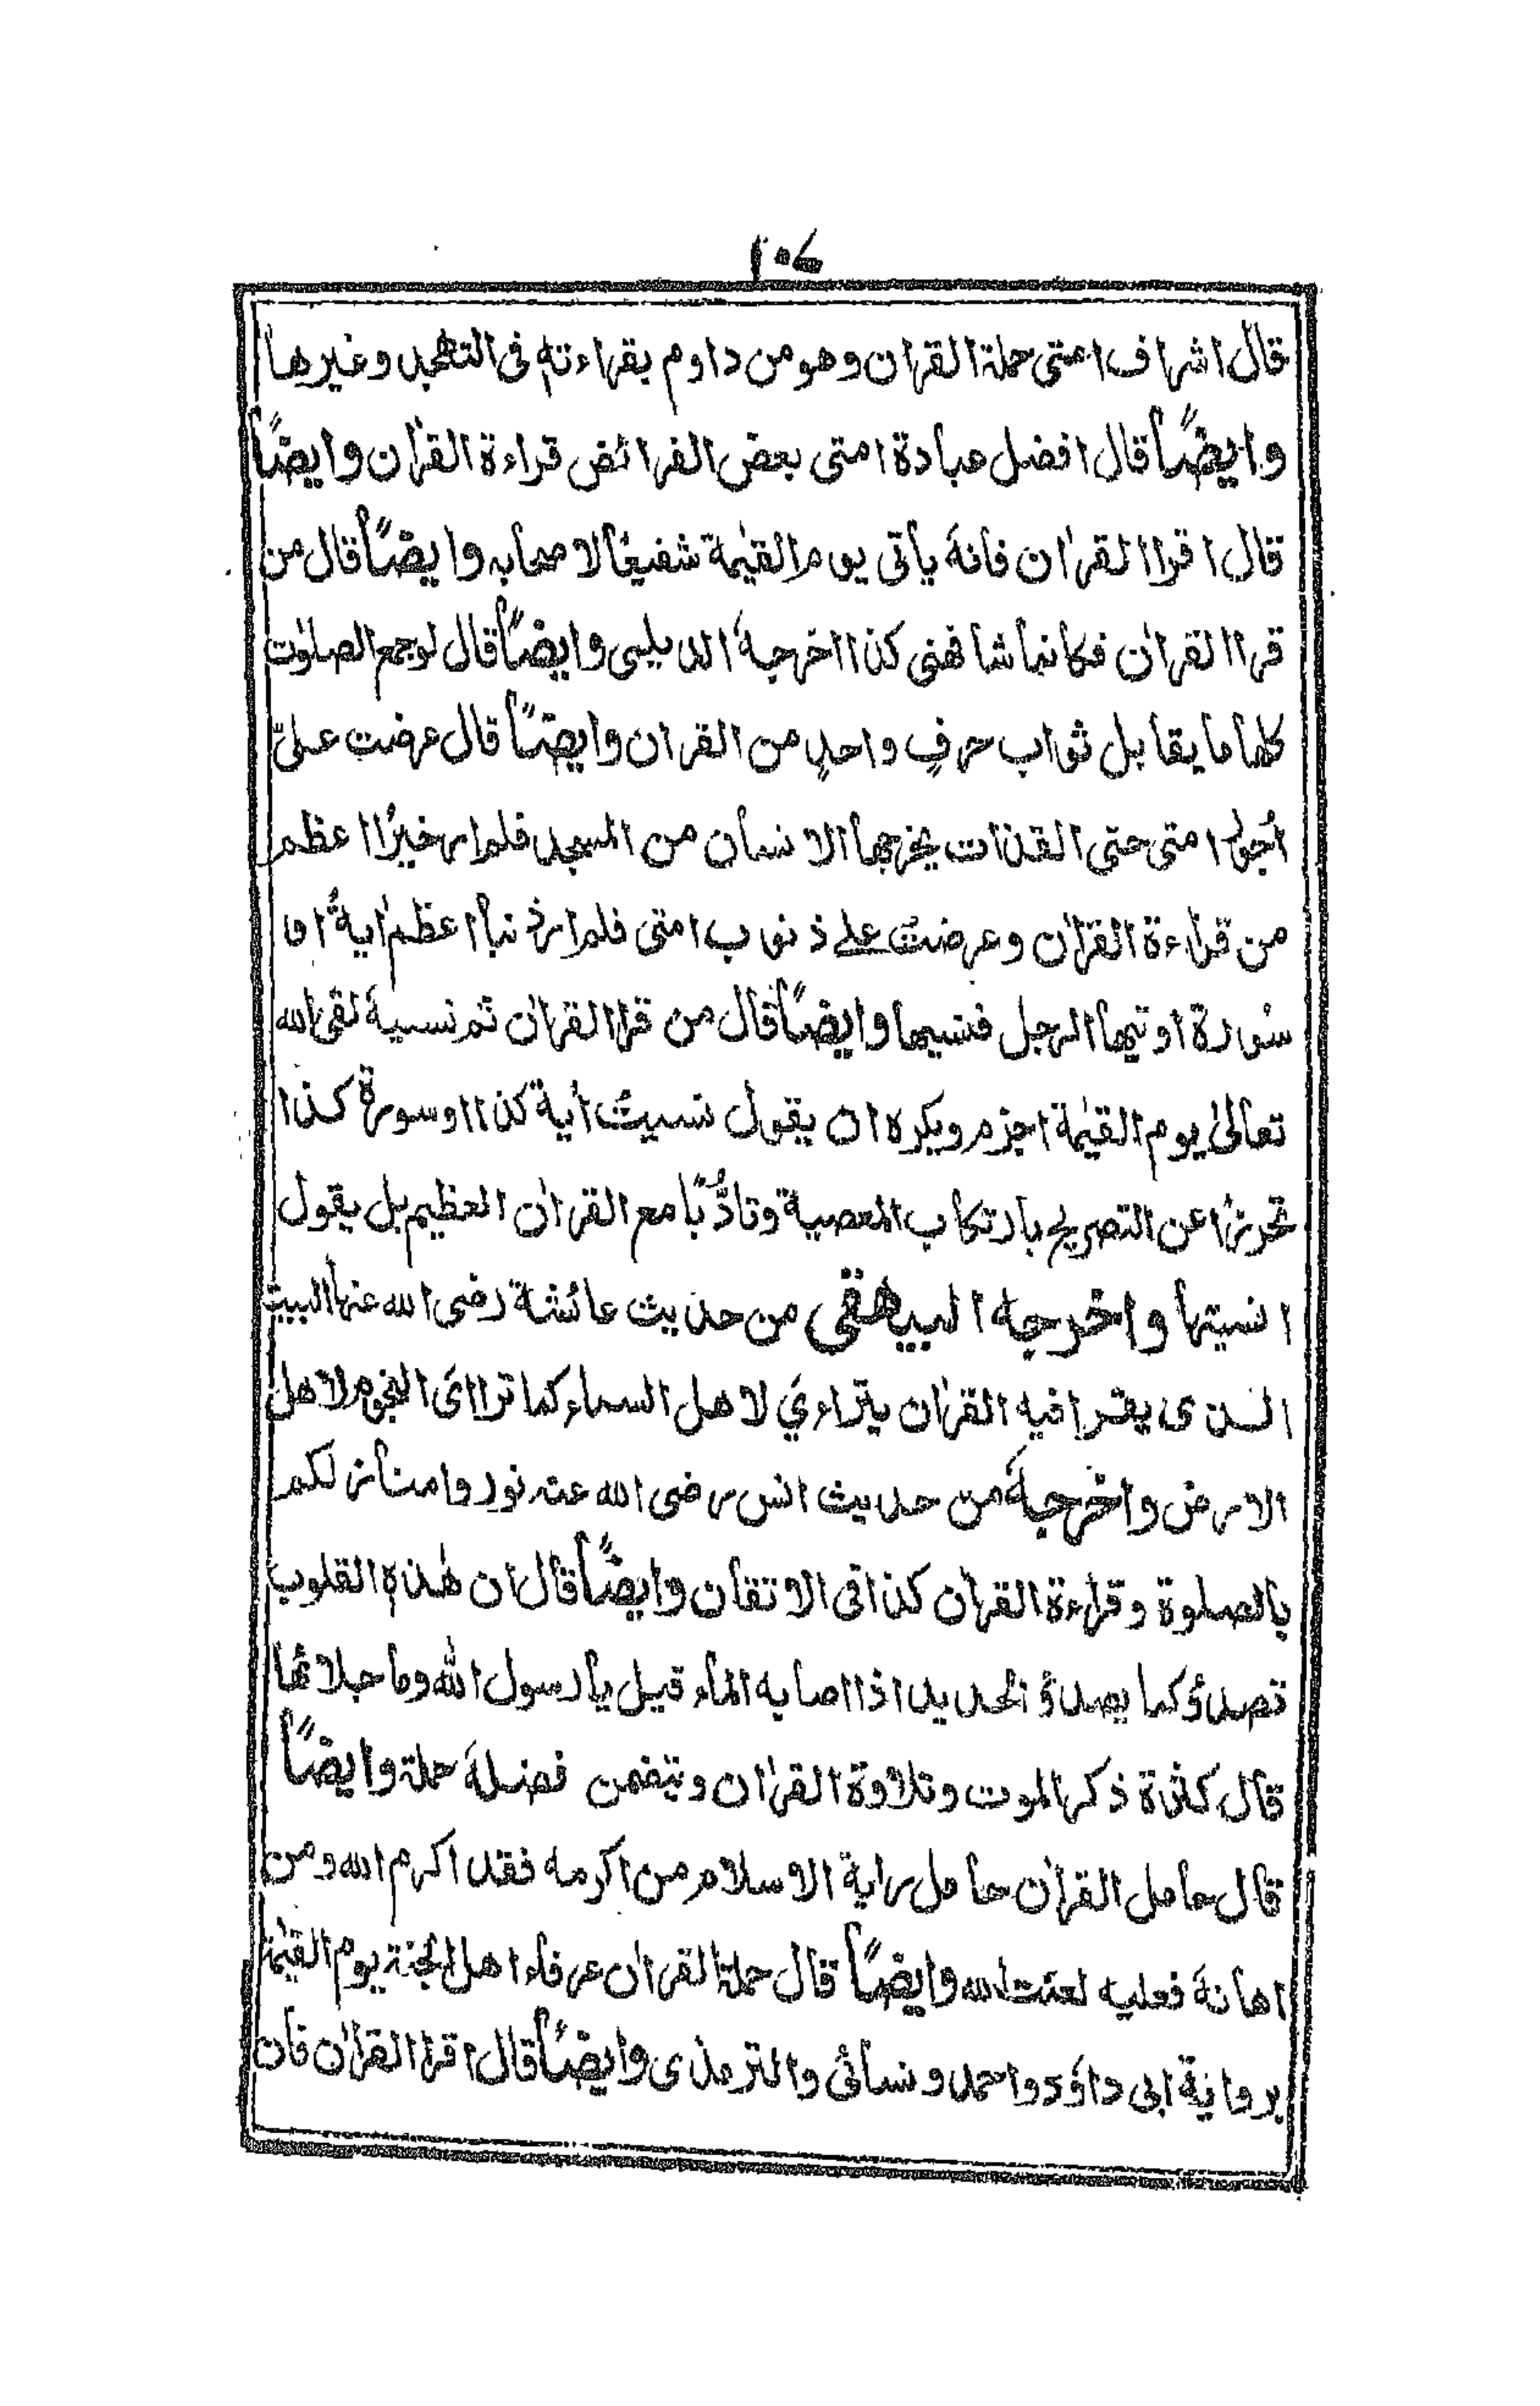 ١٠٤
قال اشراف امتى حملة القران وهو من داوم بقراءته فى التهجد وغيرها
وايضًا قال افضل عبادة امتى بعض الفرائض قراءة القرٰان وايضًا
قال اقرا القرٰان فانهٗ يأتى يوم القيٰمة شفيعًا لاصحابه وايضًا قال من
قرا القرٰان فكانما شافهنى كذا اخرجهٗ الديلمى وايضًا قال لو جمع الصلوٰت
كلها ما يقابل ثواب حرفٍ واحدٍ من القران وايضًا قال عرضت علىّ
اُجورُ امتى حتى القذات يخرجها الانسان من المسجد فلم ار خيرًا اعظم
من قراءة القرٰان وعرضتُ على ذنوب امتى فلم ار ذنبا اعظم اٰيةٌ او
سورة اوتيها الرجل فنسيها وايضًا قال من قرا القرٰان ثم نسيهٗ لقى الله
تعالىٰ يوم القيٰمة اجزم ويكره ان يقول نسيتُ اٰية كذا او سورة كذا
تحرزًا عن التصريح بارتكاب المعصية وتادُّبًا مع القرٰان العظيم بل يقول
انسيتها واخرجه البيهقى من حديث عائشة رضى الله عنها البيت
الذى يقرا فيه القرٰان يتراءي لاهل السماء كما تراائ النجوم لاهل
الارض واخرجهٗ من حديث انس رضى الله عنه نوروا منازلكم
بالصلوة وقراءة القرٰان كذا فى الاتقان وايضًا قال ان هٰذه القلوب
تصدؤ كما يصدؤ الحديد اذا اصابه الماء قيل يا رسول الله وما جلائها
قال كثرة ذكر الموت وتلاوة القرٰان ويتضمن فضلهٗ حملة وايضًا
قال حامل القرٰان حامل راية الاسلام من اكرمه فقد اكرم الله ومن
اهانهٗ فعليه لعنت الله وايضًا قال حملة القرٰان عرفاء اهل الجنة يوم القيٰمة
برواية ابى داؤد واحمد ونسائى والترمذى وايضًا قال اقرا القرٰان فان